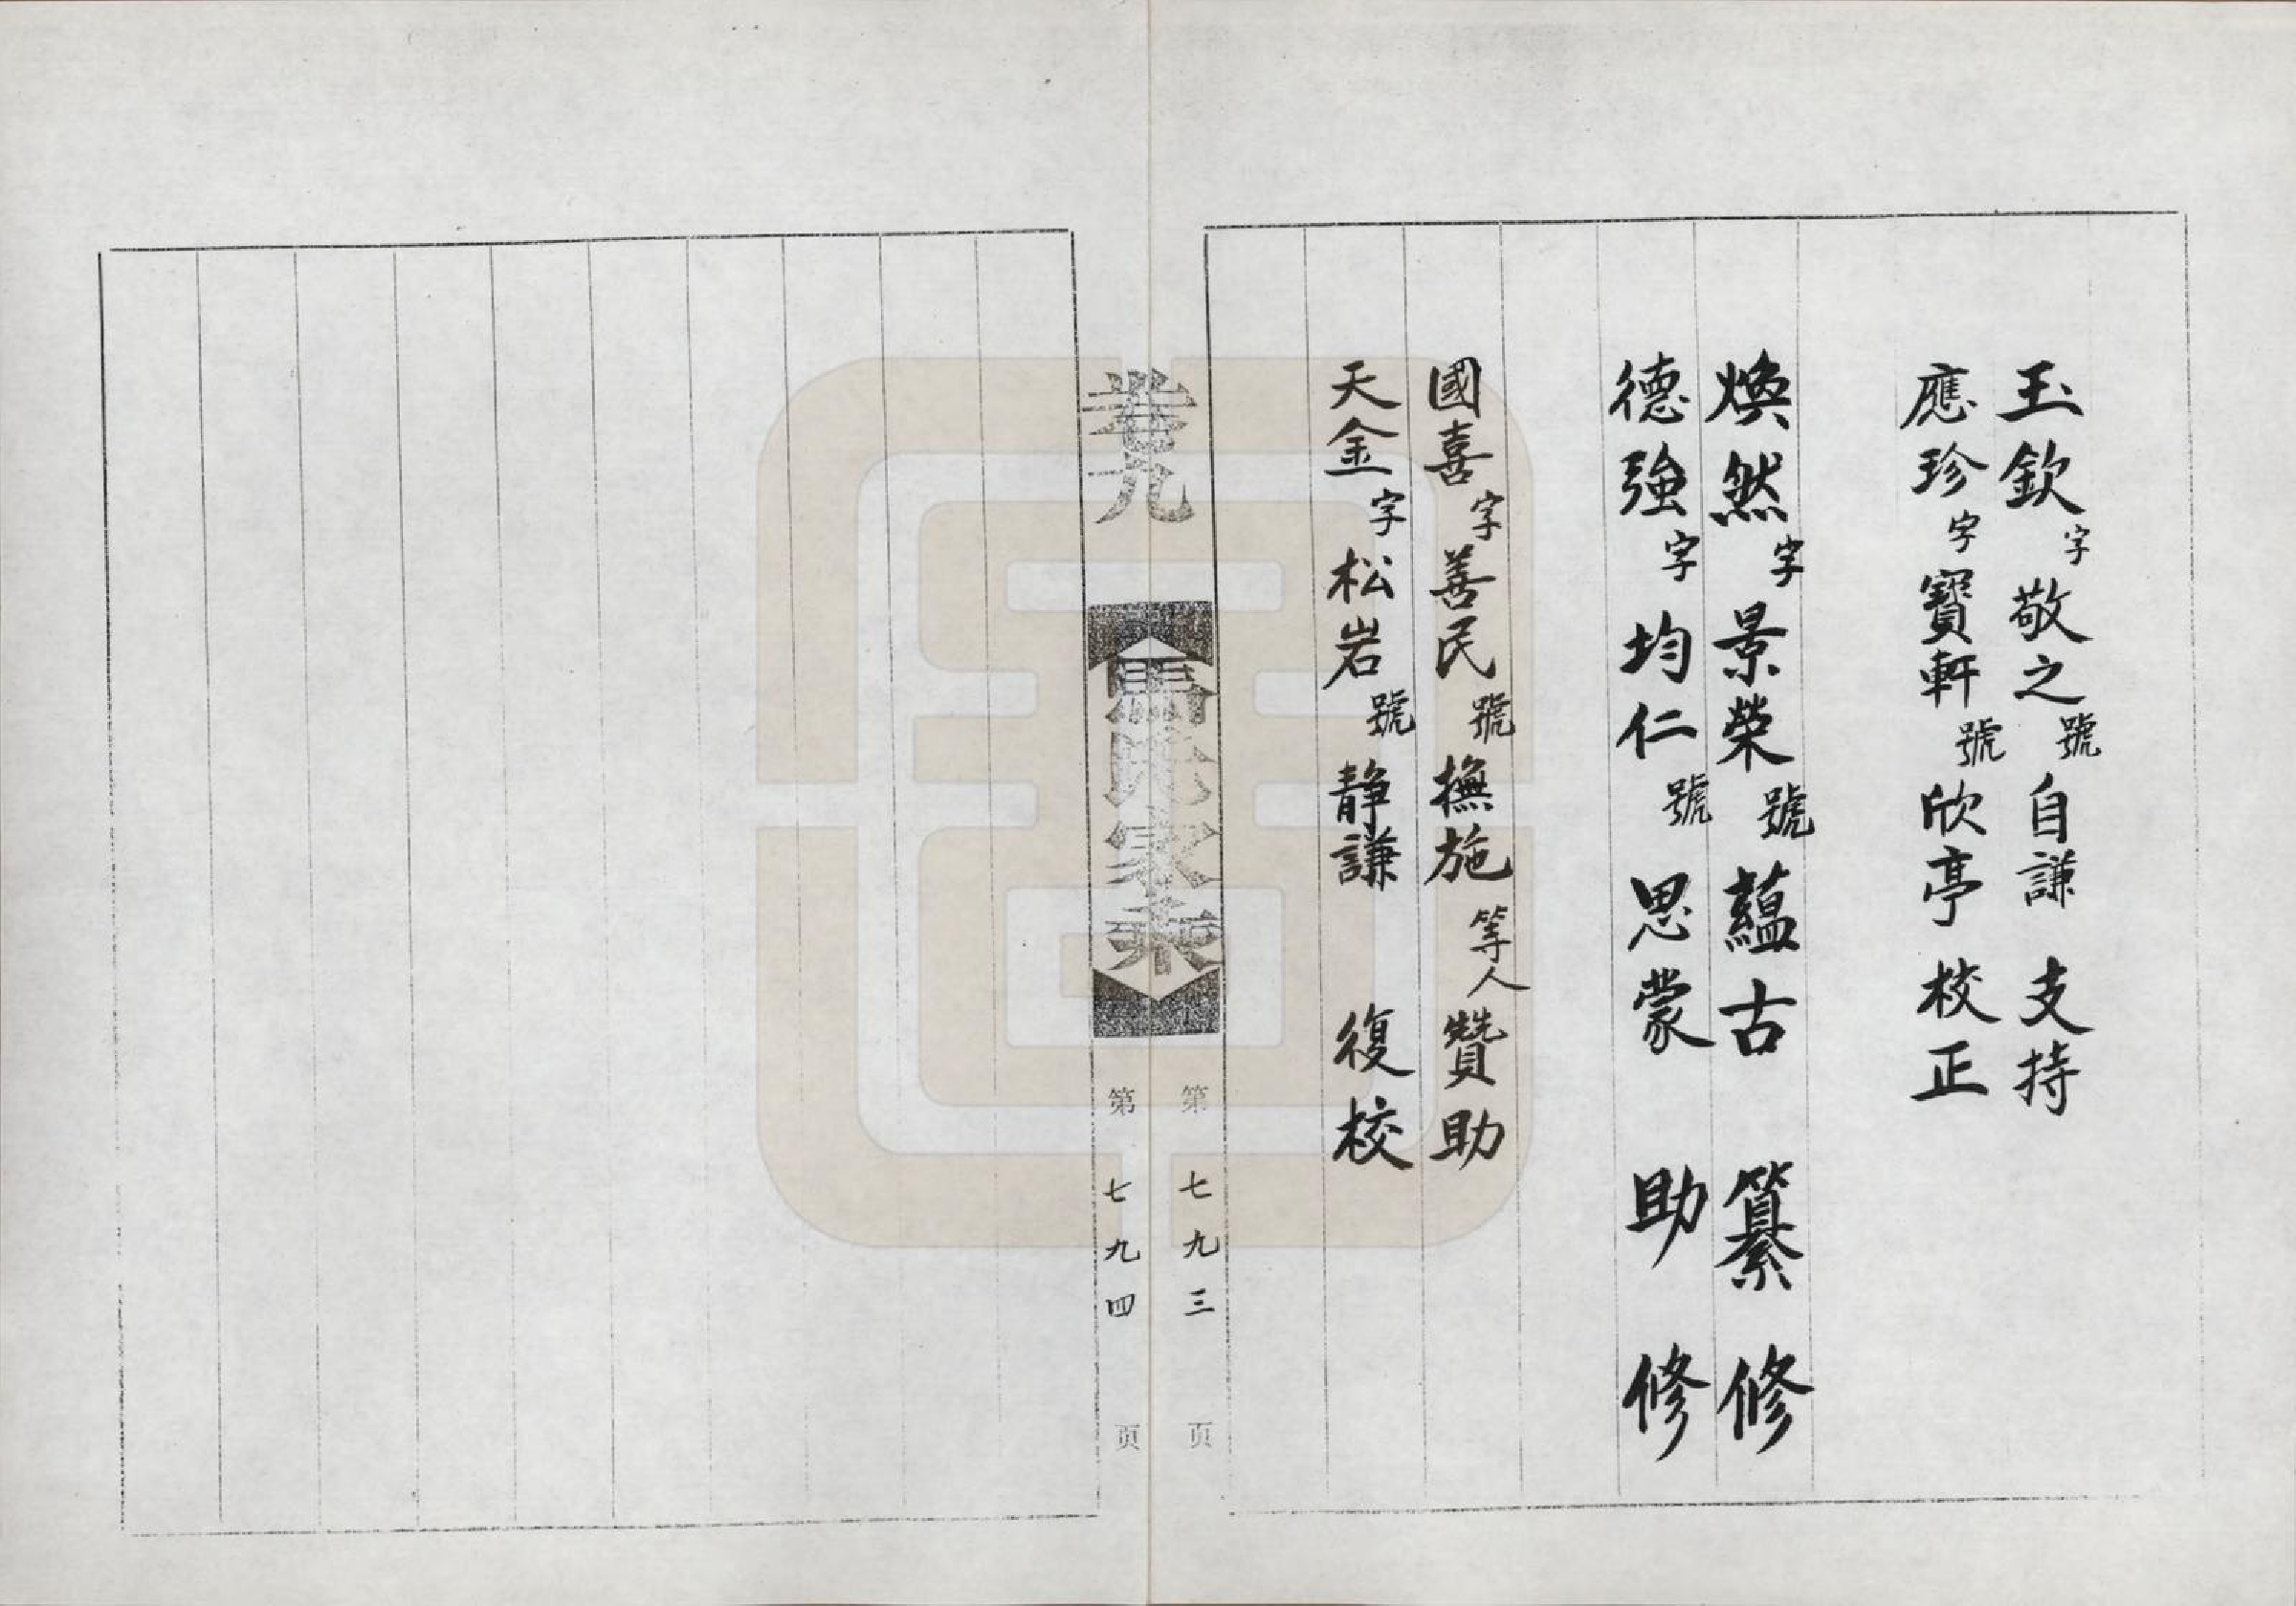 玉欽字敬之號自謙 支持
應珍字寶軒號欣亭 校正
煥然字景榮號蘊古 纂修
德強字均仁號思蒙 助修
國喜字善民號撫施等人 贊助
天金字松岩號静謙 復校
卷九
馬氏家乘
第七九三页
第七九四页